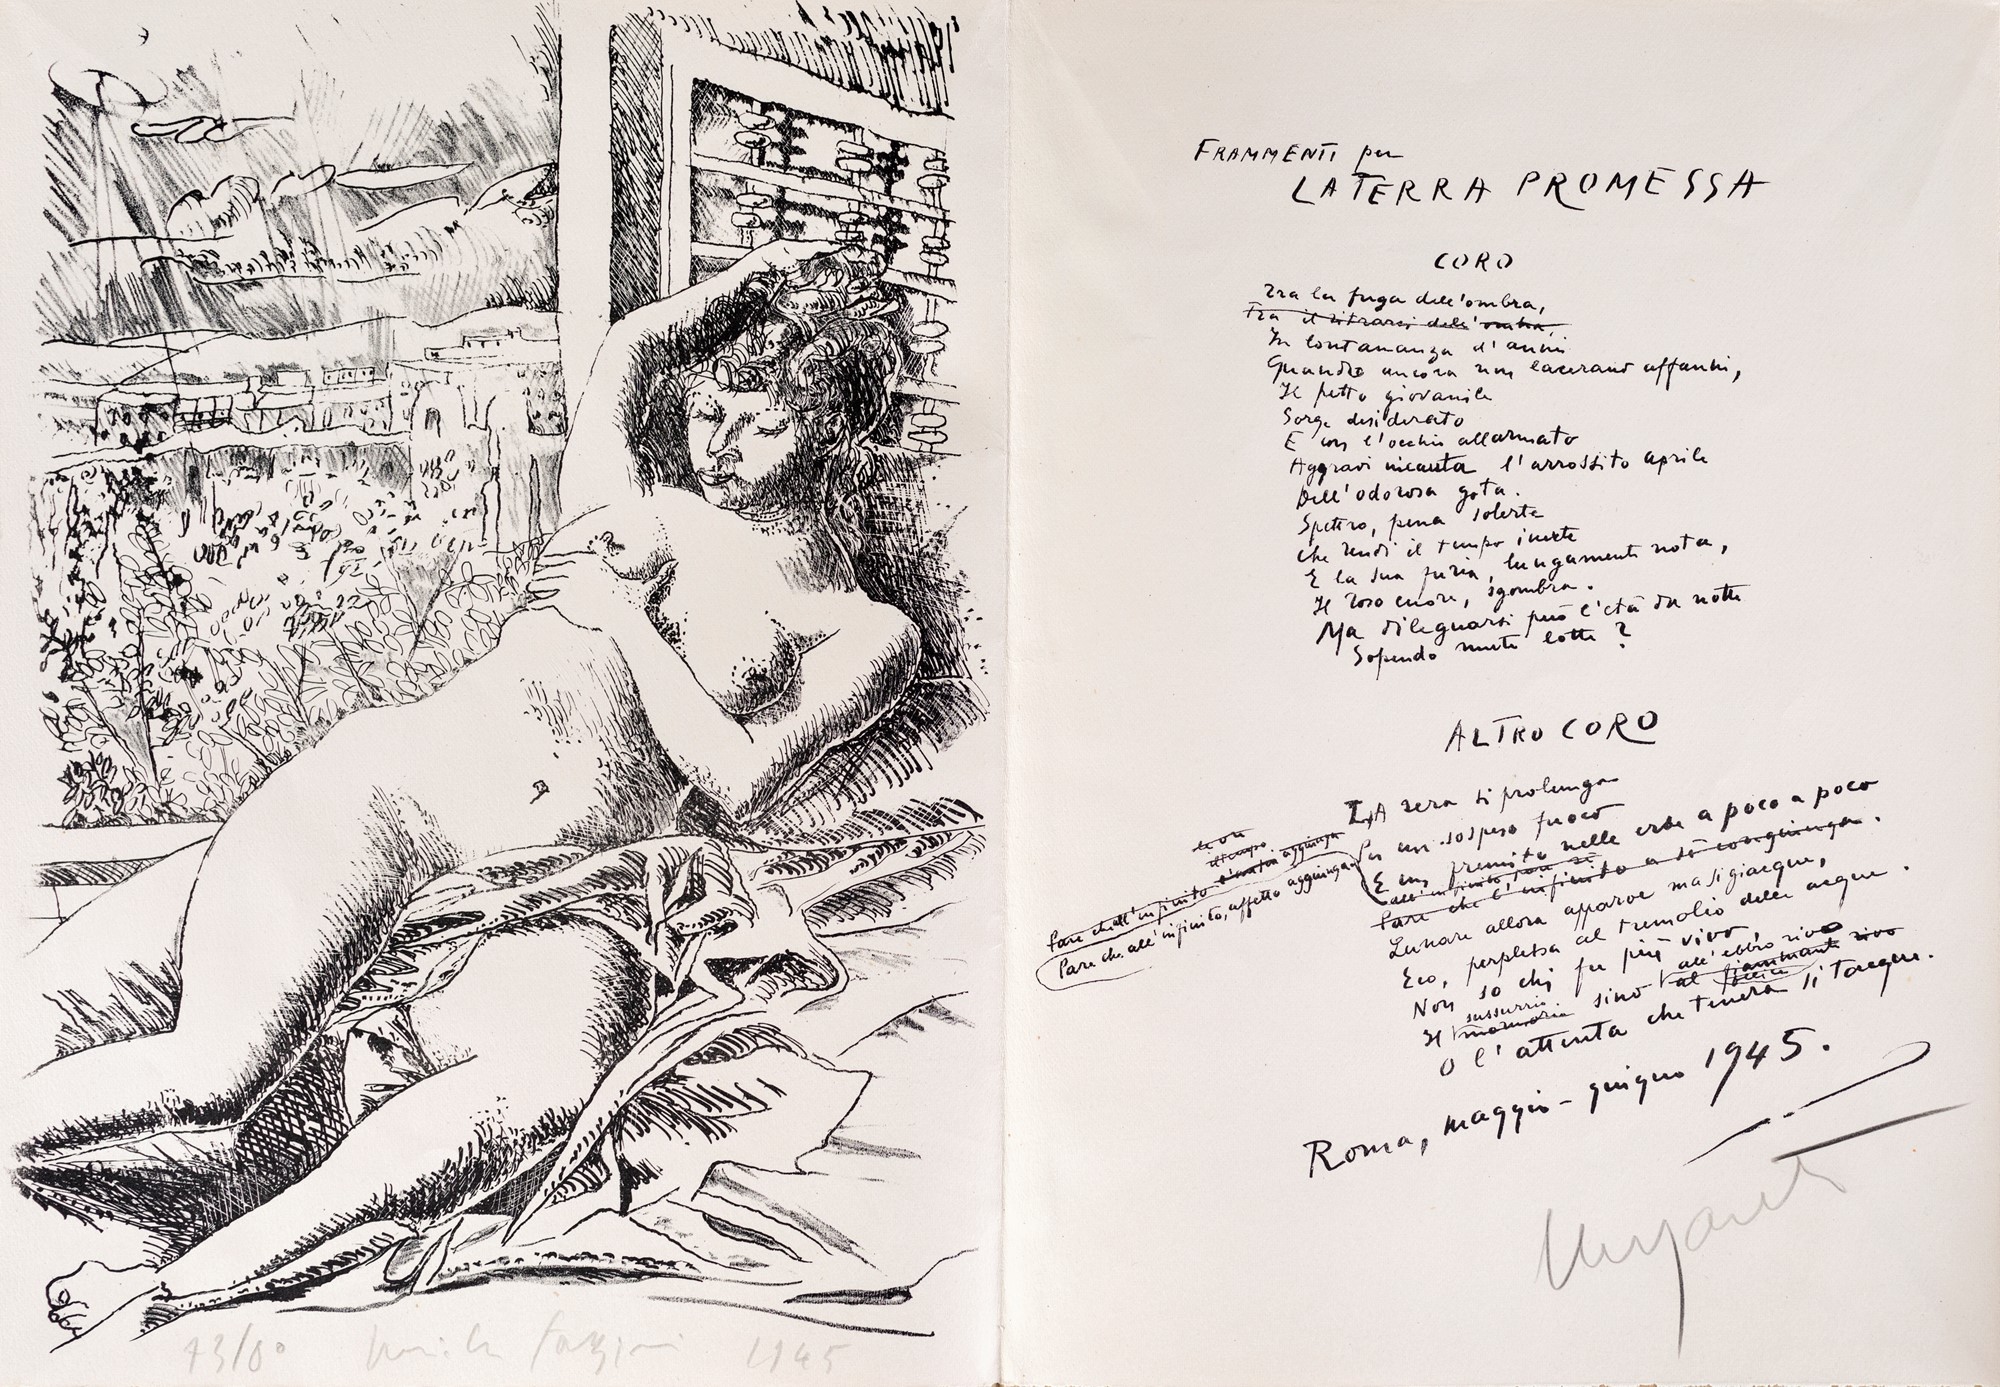 FRAMMENTI per
LA TERRA PROMESSA
CORO
Tra la fuga dell'ombra,
Tra il ritrarsi dell'ombra,
In lontananza d'anni
Quando ancora non lacerano affanni,
Il petto giovanile
Sorge desiderato
E con l'occhio allarmato
Aggravi incauta l'arrossito aprile
Dell'odorosa gota.
Spettro, pena solerte
Che rendi il tempo inerte
E la sua furia, lungamente nota,
Il roso cuore, sgombra.
Ma dileguarsi può l'età da notte
Sopendo mute lotte?
ALTRO CORO
LA sera si prolunga
Per un sospeso fuoco
E un fremito nelle erbe a poco a poco
Pare che l'infinito a sè congiunga.
Pare che all'infinito
Pare che all'infinito, affetto aggiunga
Lunare allora apparve ma si giacque,
Eco, perplessa al tremolio delle acque.
Non so chi fu più vivo,
Il sussurrio sino all'ebbro rivo
memoria al fiammante rivo
O l'attenta che tenera si tacque.
Roma, maggio-giugno 1945.
Ungaretti
73/80 1945